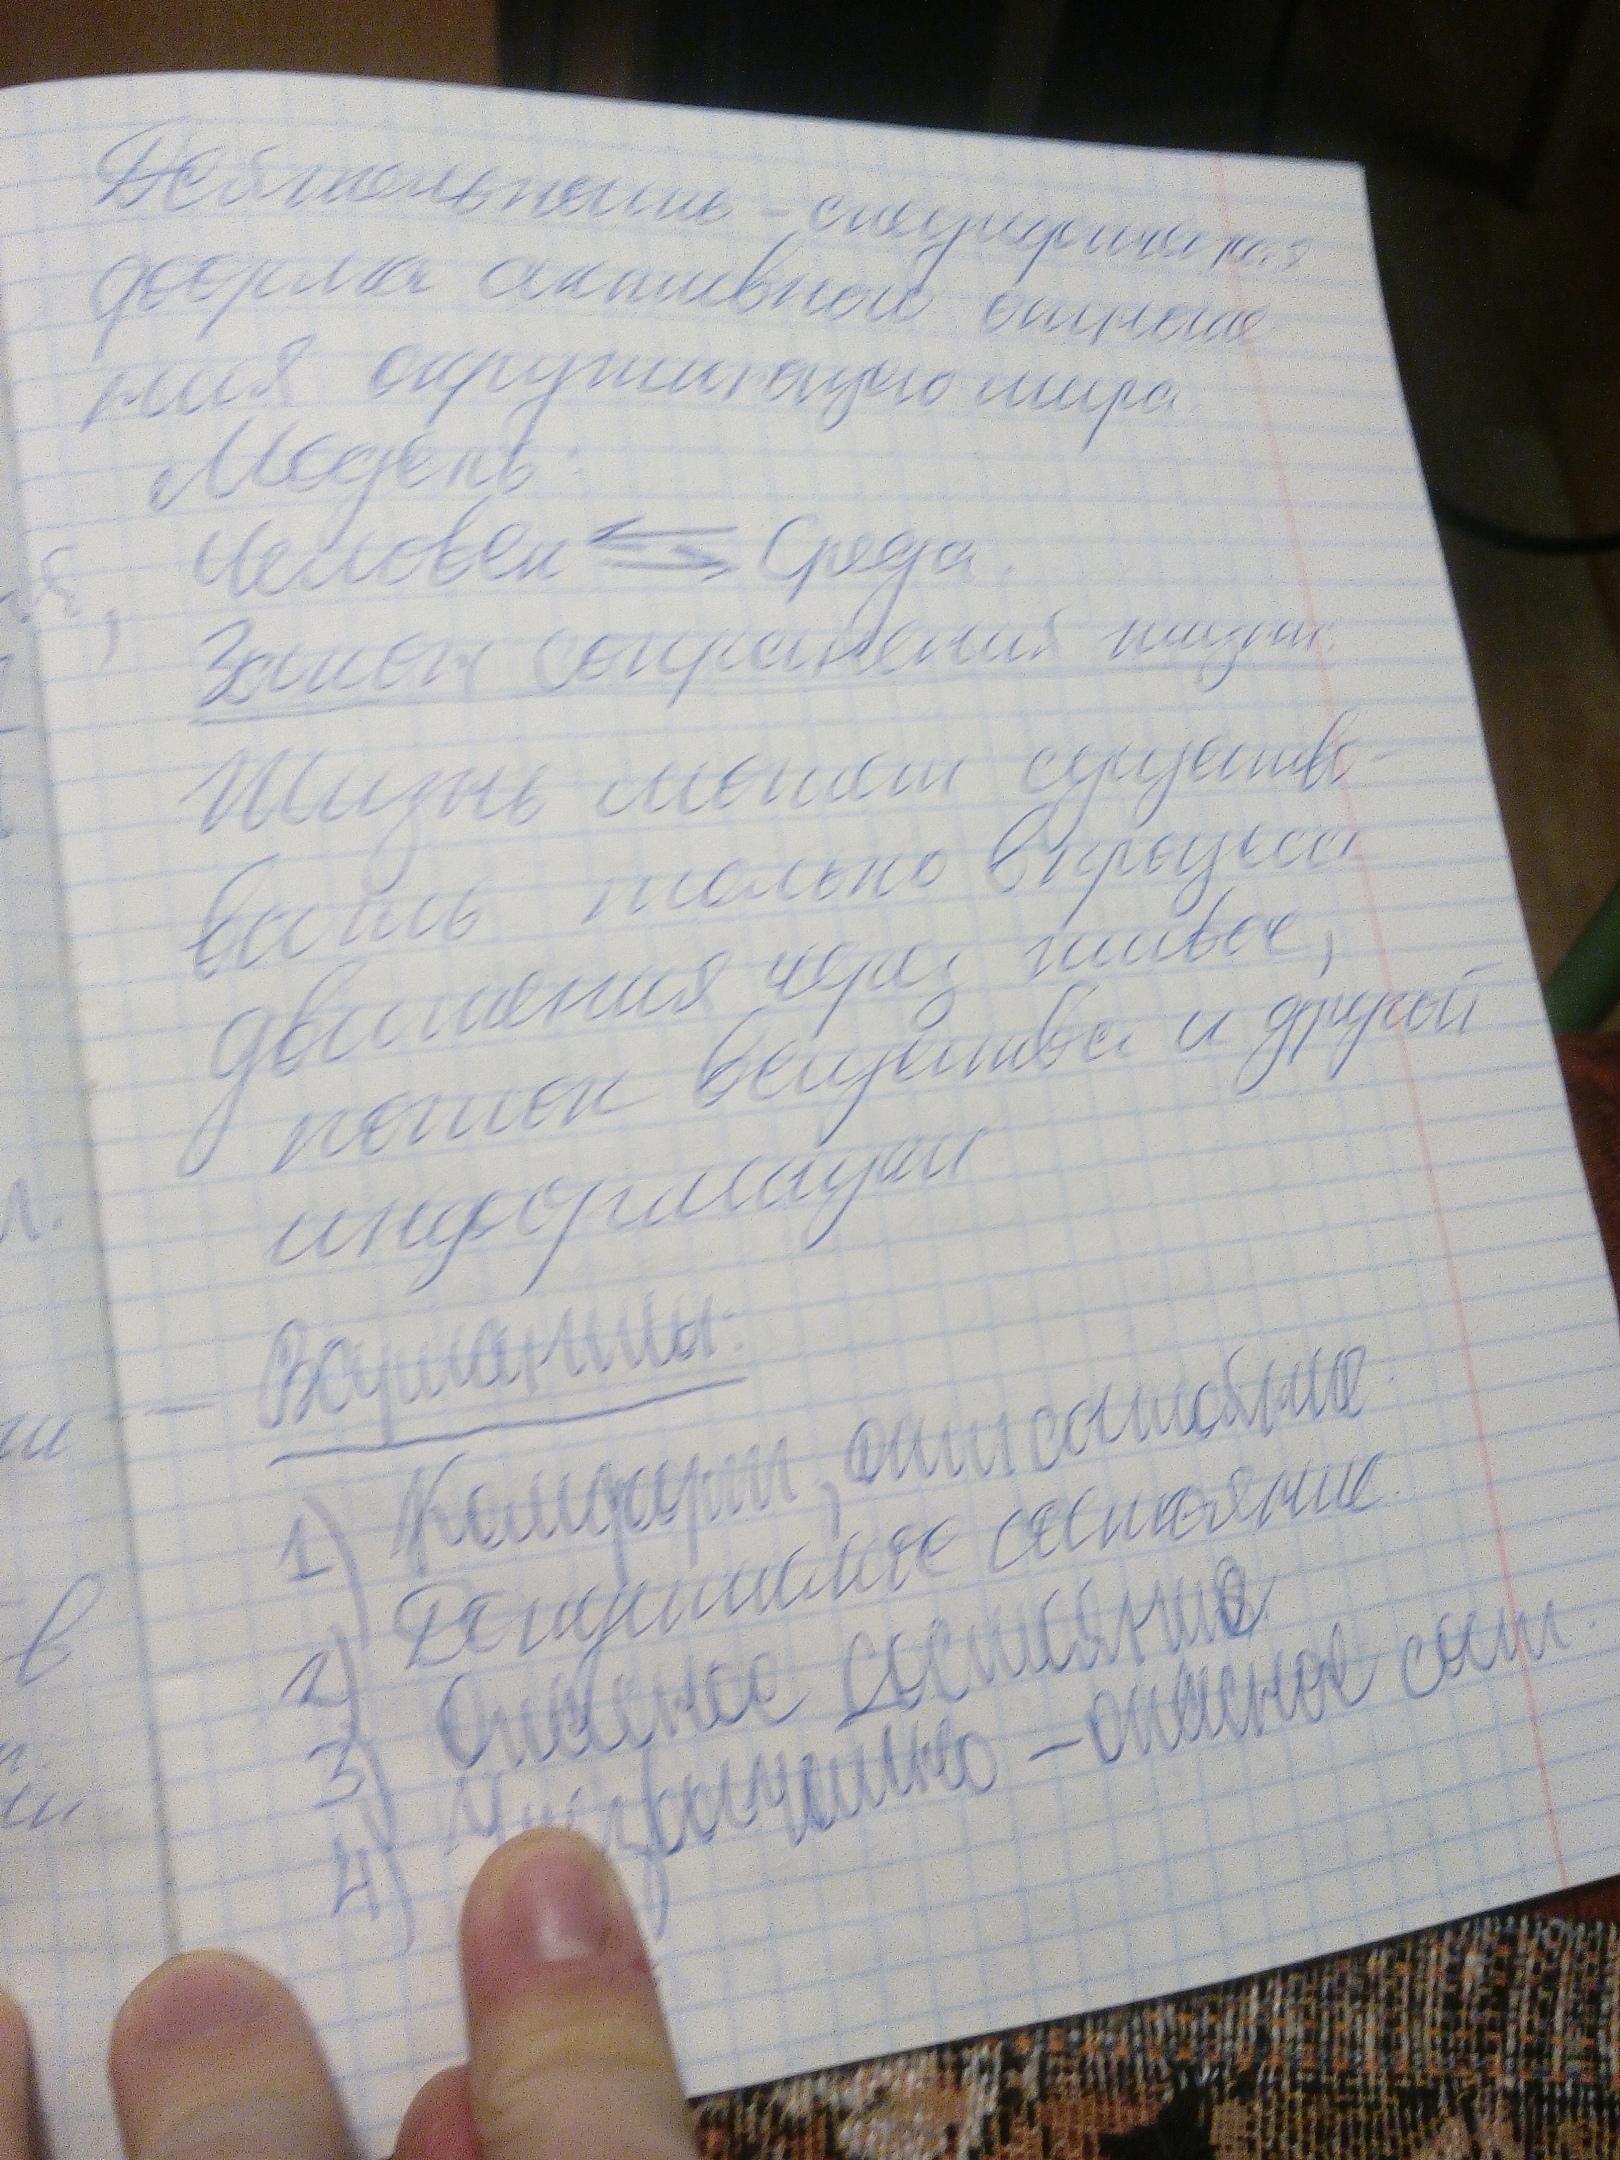 Деятельность - специфичная
форма активного отноше
ния окружающего мира
Модель:
Человек ⇆ Среда.
Закон сохранения жизни.
Жизнь может существо-
вать только в процессе
движения через живое,
поток вещества и другой
информации
Варианты:
1) Комфорт, оптимальное
2) Допустимое состояние.
3) Опасное состояние.
4) Чрезвычайно - опасное сост.